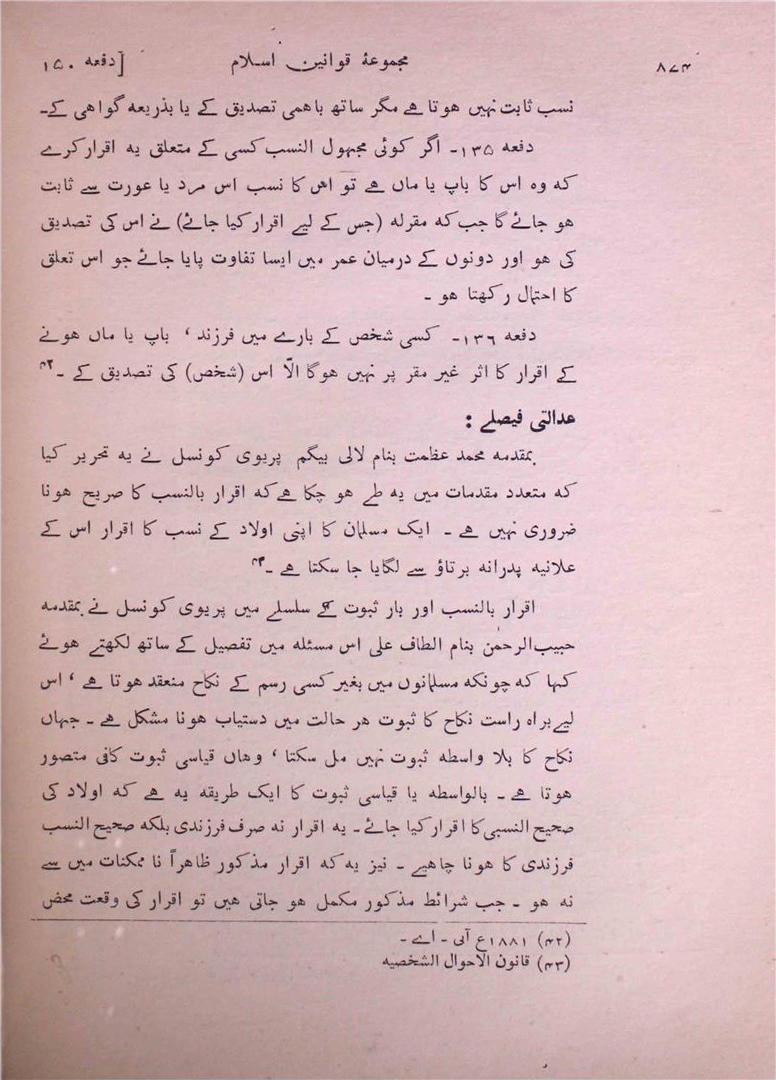 ۸۷۴ مجموعۂ قوانین اسلام [دفعہ ۱۵۰
نسب ثابت نہیں ہوتا ہے مگر ساتھ باہمی تصدیق کے یا بذریعہ گواہی کے۔
دفعہ ۱۳۵۔ اگر کوئی مجہول النسب کسی کے متعلق یہ اقرار کرے
کہ وہ اس کا باپ یا ماں ہے تو اس کا نسب اس مرد یا عورت سے ثابت
ہو جائے گا جب کہ مقرلہ (جس کے لیے اقرار کیا جائے) نے اس کی تصدیق
کی ہو اور دونوں کے درمیان عمر میں ایسا تفاوت پایا جائے جو اس تعلق
کا احتمال رکھتا ہو ۔
دفعہ ۱۳۶۔ کسی شخص کے بارے میں فرزند ، باپ یا ماں ہونے
کے اقرار کا اثر غیر مقر پر نہیں ہوگا الّا اس (شخص) کی تصدیق کے ۔۴۲
عدالتی فیصلے :
بمقدمہ محمد عظمت بنام لالی بیگم پریوی کونسل نے یہ تحریر کیا
کہ متعدد مقدمات میں یہ طے ہو چکا ہے کہ اقرار بالنسب کا صریح ہونا
ضروری نہیں ہے ۔ ایک مسلمان کا اپنی اولاد کے نسب کا اقرار اس کے
علانیہ پدرانہ برتاؤ سے لگایا جا سکتا ہے ۔۴۳
اقرار بالنسب اور بار ثبوت کے سلسلے میں پریوی کونسل نے بمقدمہ
حبیب الرحمٰن بنام الطاف علی اس مسئلہ میں تفصیل کے ساتھ لکھتے ہوئے
کہا کہ چونکہ مسلمانوں میں بغیر کسی رسم کے نکاح منعقد ہوتا ہے ، اس
لیے براہ راست نکاح کا ثبوت ہر حالت میں دستیاب ہونا مشکل ہے ۔ جہاں
نکاح کا بلا واسطہ ثبوت نہیں مل سکتا ، وہاں قیاسی ثبوت کافی متصور
ہوتا ہے ۔ بالواسطہ یا قیاسی ثبوت کا ایک طریقہ یہ ہے کہ اولاد کی
صحیح النسبی کا اقرار کیا جائے ۔ یہ اقرار نہ صرف فرزندی بلکہ صحیح النسب
فرزندی کا ہونا چاہیے ۔ نیز یہ کہ اقرار مذکور ظاہراً نا ممکنات میں سے
نہ ہو ۔ جب شرائط مذکور مکمل ہو جاتی ہیں تو اقرار کی وقعت محض
(۴۲) ۱۸۸۱ع آئی ۔ اے ۔
(۴۳) قانون الاحوال الشخصیہ